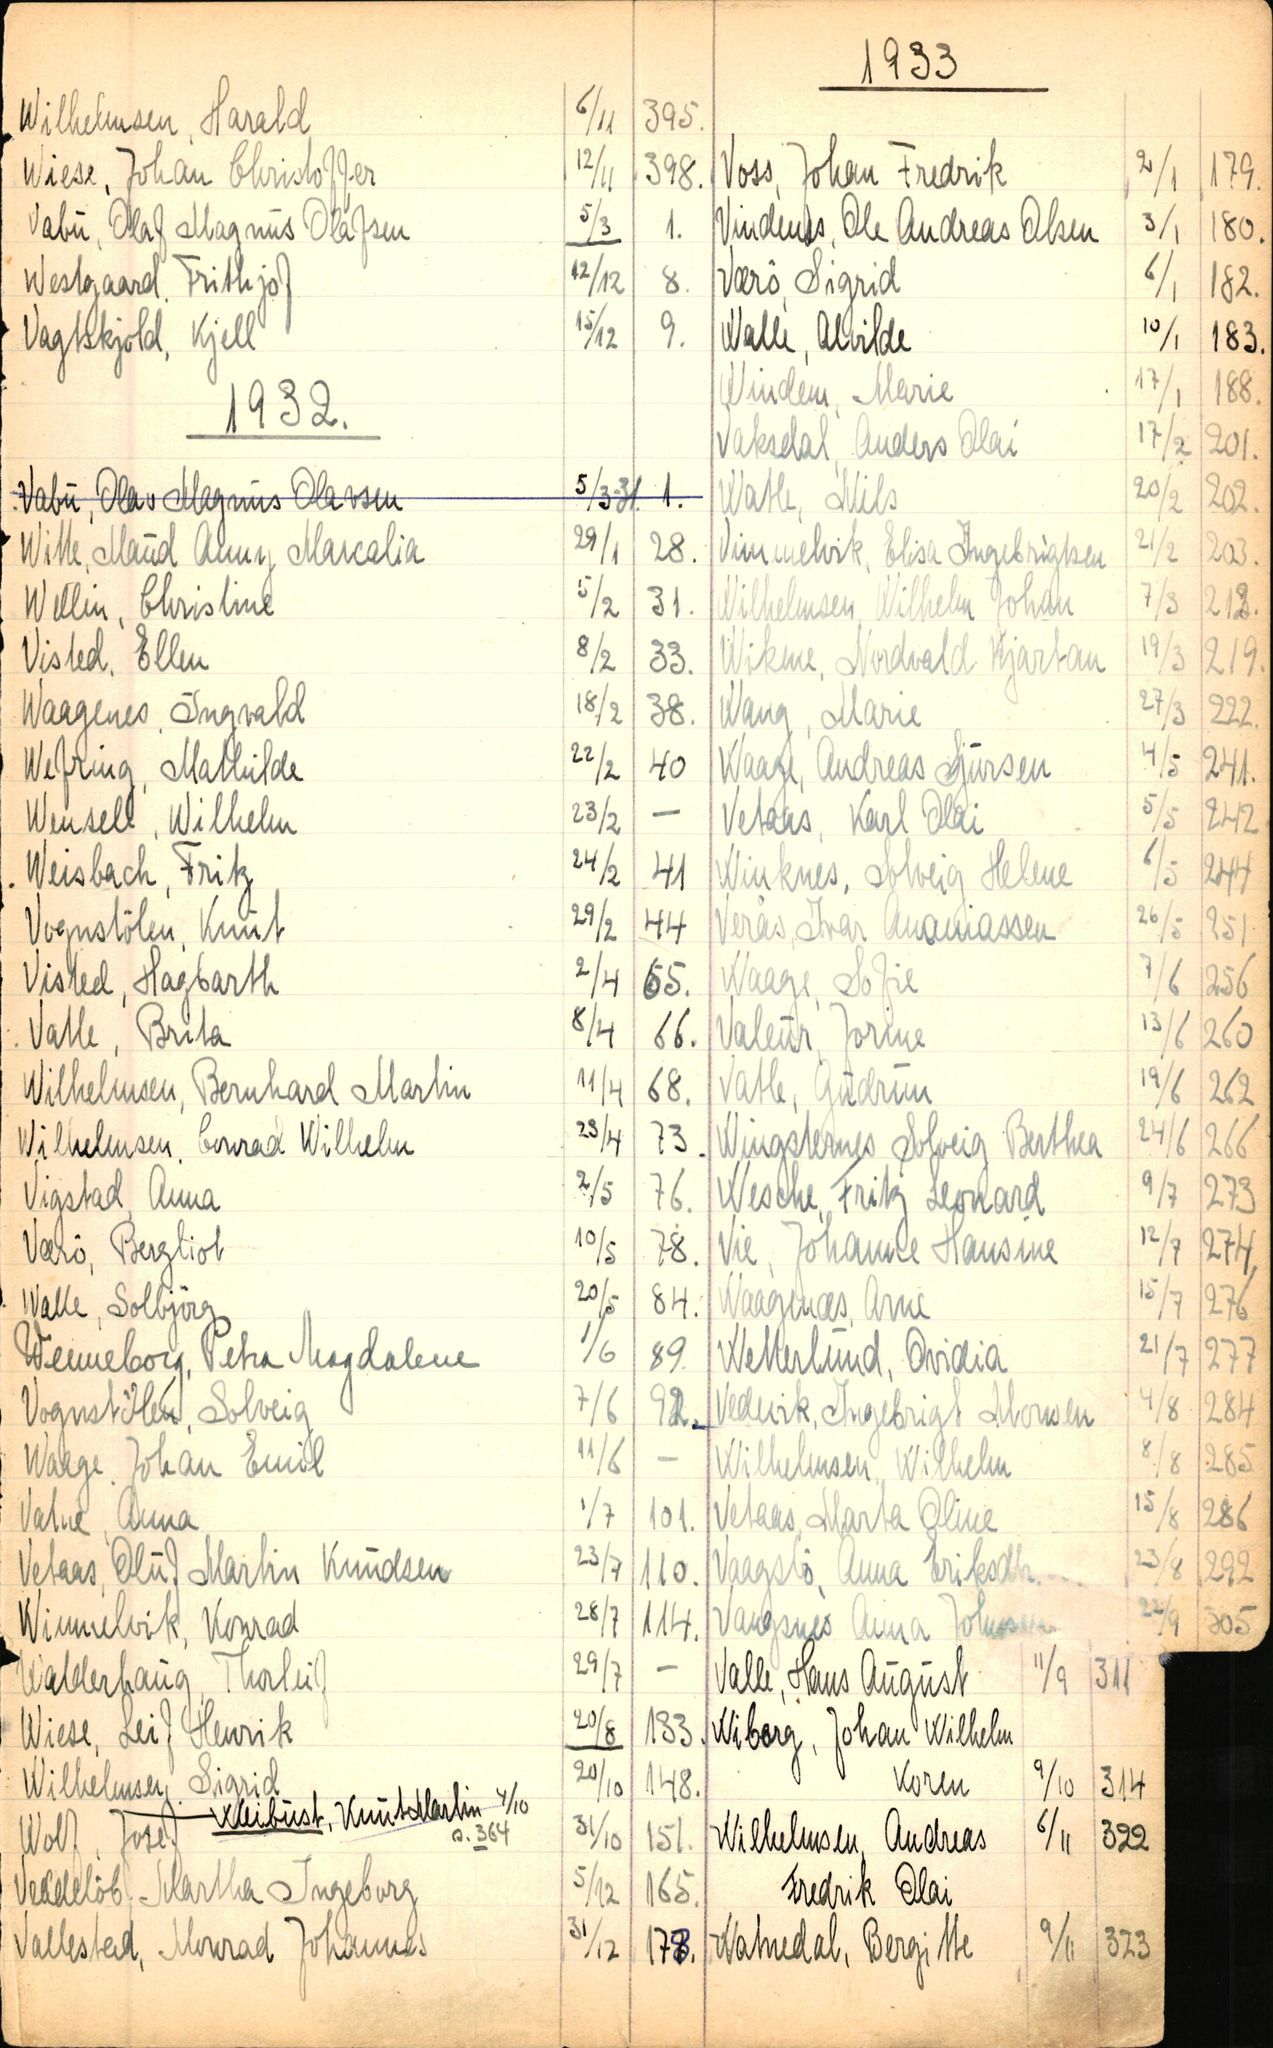 Wilhelmsen, Harald 6/11 395.
Wiese, Johan Christoffer 12/11 398.
Vabü, Olaf Magnus Olafsen 5/3 1.
Westgaard, Frithjof 12/12 8.
Vagtskjold, Kjell 15/12 9.
1932.
Vabü, Olav Magnus Olavsen 5/3-31. 1.
Witte, Maud Anny Marcalia 29/1 28.
Wellin, Christine 5/2 31.
Visted, Ellen 8/2 33.
Waagenes, Ingvald 18/2 38.
Wefring, Mathilde 22/2 40
Wensell, Wilhelm 23/2 —
Weisbach, Fritz 24/2 41
Vognstölen, Knut 29/2 44
Visted, Hagbarth 2/4 65.
Valle, Brita 8/4 66.
Wilhelmsen, Bernhard Martin 11/4 68.
Wilhelmsen, Conrad Wilhelm 23/4 73.
Vigstad, Anna 2/5 76.
Værö, Bergliot 10/5 78.
Walle, Solbjörg 20/5 84.
Wenneborg, Petra Magdalene 1/6 89.
Vognstölen, Solveig 7/6 92.
Waage, Johan Emil 11/6 —
Vatne, Anna 1/7 101.
Vetaas, Oluf Martin Knudsen 23/7 110.
Wimmelvik, Konrad 28/7 114.
Walderhaug, Thorleif 29/7 —
Wiese, Leif Henrik 20/8 133.
Wilhelmsen, Sigrid 20/10 148.
Weibust, Knut Martin 4/10 s. 364
Wolf, Josef 31/10 151.
Veddelöb, Martha Ingeborg 5/12 165.
Vallestad, Monrad Johannes 31/12 178.
1933
Voss, Johan Fredrik 2/1 179.
Vindenes, Ole Andreas Olsen 3/1 180.
Værö, Sigrid 6/1 182.
Walle, Alvilde 10/1 183.
Windem, Marie 17/1 188.
Vaksdal, Anders Olai 17/2 201.
Watle, Nils 20/2 202.
Vimmelvik, Elisa Ingebrigtsen 21/2 203.
Wilhelmsen, Wilhelm Johan 7/3 212.
Wikme, Nordvald Kjartan 19/3 219.
Wang, Marie 27/3 222.
Waage, Andreas Sjursen 4/5 241.
Vetaas, Karl Olai 5/5 242
Winknes, Solveig Helene 6/5 244
Verås, Ivar Ananiassen 26/5 251
Waage, Sofie 7/6 256
Valeur, Jorine 13/6 260
Vatle, Gudrun 19/6 262
Wingsternes Solveig Berthea 24/6 266
Wesche, Fritz Leonard 9/7 273
Vie, Johanne Hansine 12/7 274
Waagenæs, Arne 15/7 276
Wetterlund, Ovidia 21/7 277
Vedvik, Ingebrigt Monsen 4/8 284
Wilhelmsen, Wilhelm 8/8 285
Vetaas, Marta Oline 15/8 286
Vaagsbö, Anna Eriksdtr. 23/8 292
Vangsnes Anna Johnsen 22/9 305
Valle, Hans August 11/9 311
Wiborg, Johan Wilhelm
Koren 9/10 314
Wilhelmsen, Andreas 6/11 322
Fredrik Olai
Watnedal, Bergitte 9/11 323